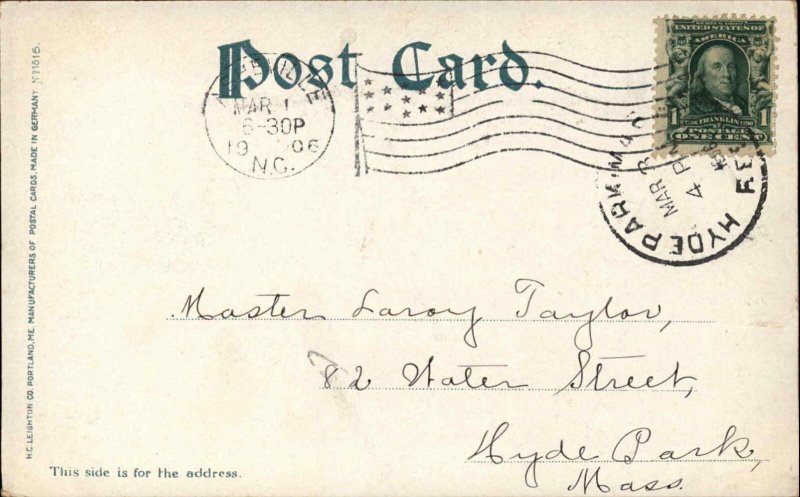 Post Card.
MAR
6-30P
19 06
N.C.
SERIES 1902
UNITED STATES OF
AMERICA
1 FRANKLIN 1
POSTAGE
ONE CENT
HYDE PARK
MAR
4 PM
REC'D
Master Laroy Taylor,
82 Water Street,
Hyde Park,
Mass.
This side is for the address.
H.C. LEIGHTON CO. PORTLAND, ME. MANUFACTURERS OF POSTAL CARDS, MADE IN GERMANY Nº 21816.